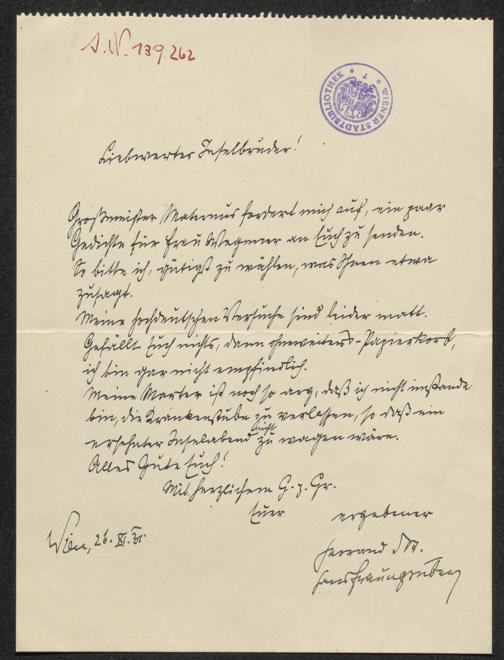 J.N. 139.262
WIENER STADTBIBLIOTHEK * 7 *
Liebwerter Inselbruder!
Großmeister Maternus fordert mich auf, ein paar
Gedichte für Frau Wegner an Euch zu senden.
So bitte ich, gütigst zu wählen, was Ihnen etwa
zusagt.
Meine hochdeutschen Versuche sind leider matt.
Gefällt Euch nichts, dann ohneweiters - Papierkorb,
ich bin gar nicht empfindlich.
Meine Marter ist noch so arg, daß ich nicht imstande
bin, die Krankenstube zu verlassen, so daß ein
ersehnter Inselabend nicht zu wagen wäre.
Alles Gute Euch!
Mit herzlichem G. z. Gr.
Euer ergebener
Wien, 26. XI.